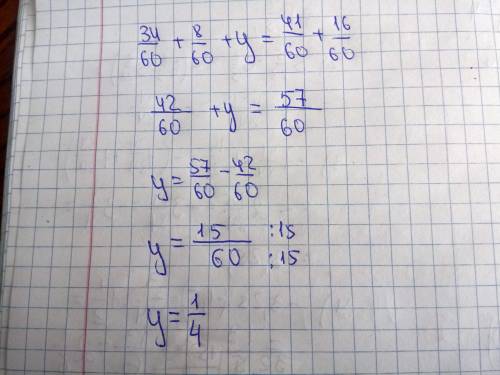 34/60 + 8/60 + y = 41/60 + 16/60
42/60 + y = 57/60
y = 57/60 - 42/60
y = 15/60 :15 :15
y = 1/4